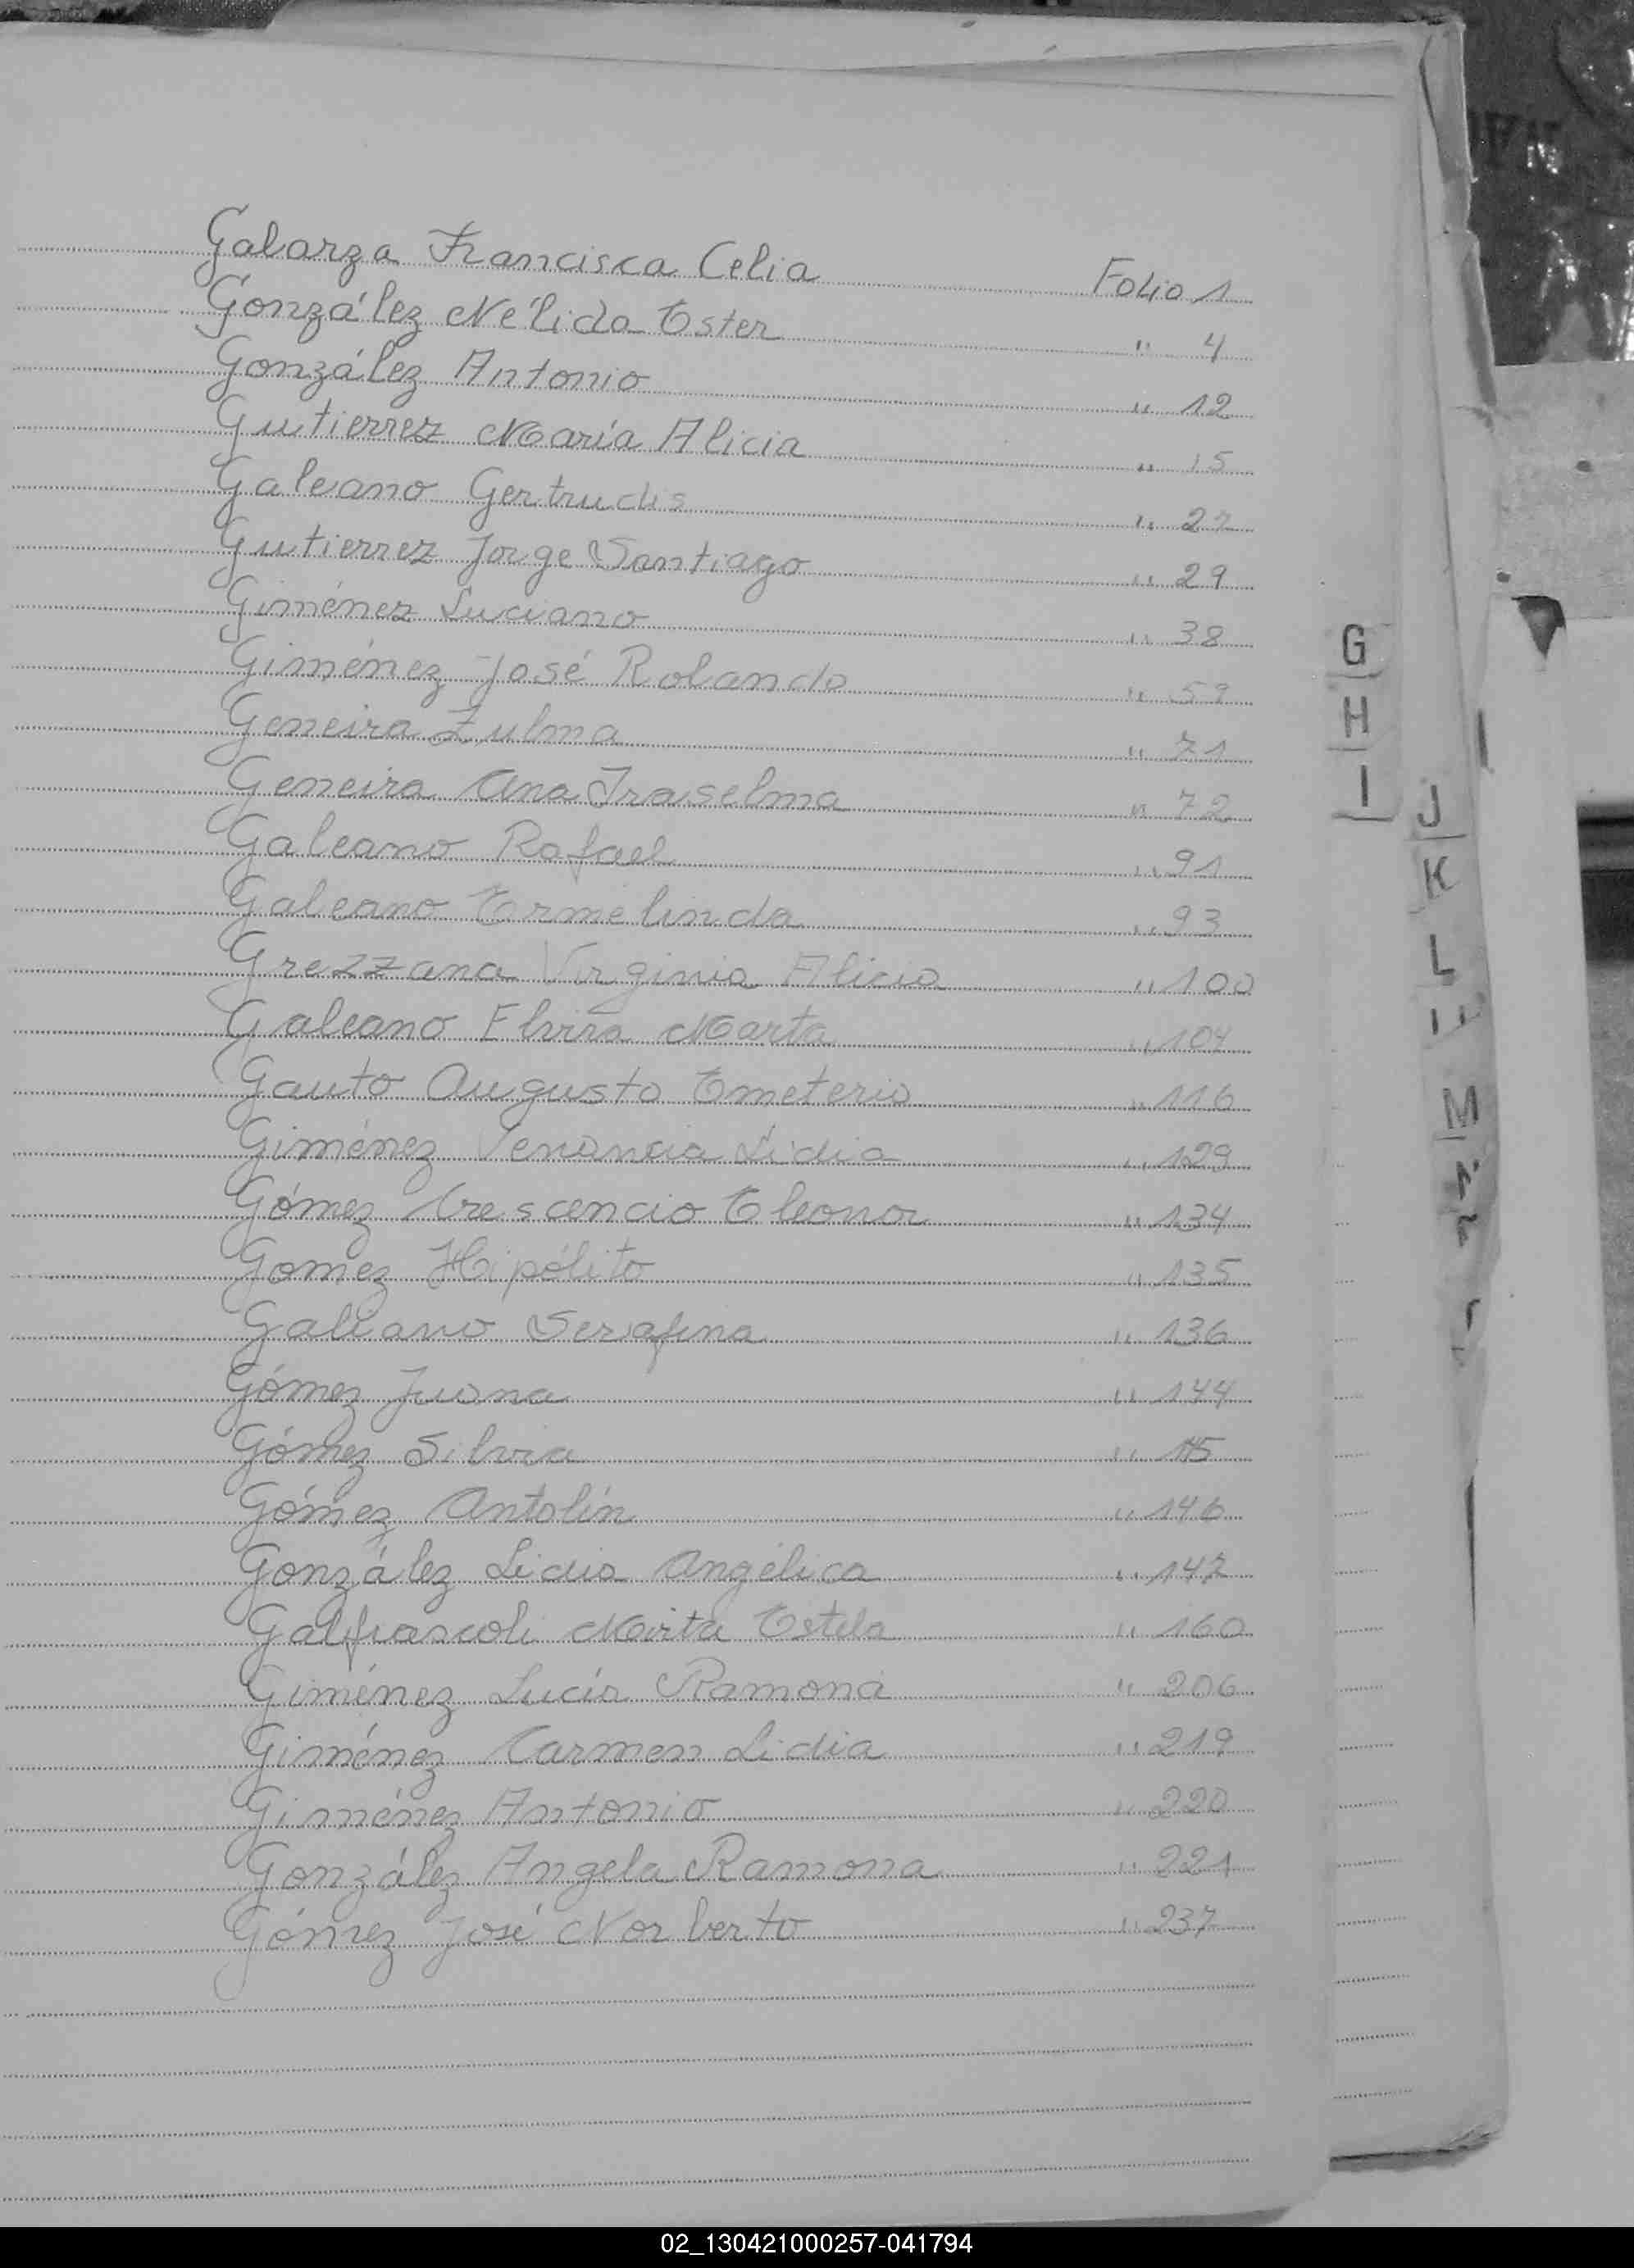 Galarza Francisca Celia Folio 1
González Nélida Ester " 4
González Antonio " 12
Gutierrez María Alicia " 15
Galeano Gertrudis " 27
Gutierrez Jorge Santiago " 29
Giménez Luciano " 38
Giménez José Rolando " 59
Geneira Zulma " 71
Geneira Ana Iraselma " 72
Galeano Rafael " 91
Galeano Ermelinda " 93
Grezzana Virginia Alicia " 100
Galeano Elvira Marta " 104
Gauto Augusto Emeterio " 116
Giménez Venancia Lidia " 129
Gómez Crescencio Eleonor " 134
Gomez Hipólito " 135
Galeano Serafina " 136
Gómez Juana " 144
Gómez Silvia " 145
Gómez Antolín " 146
González Lidia Angélica " 147
Galfrascoli Mirta Estela " 160
Giménez Lucía Ramona " 206
Giménez Carmen Lidia " 219
Giménez Antonio " 220
González Angela Ramona " 221
Gómez José Norberto " 237
G
H
I
J
K
L
M
02_130421000257-041794